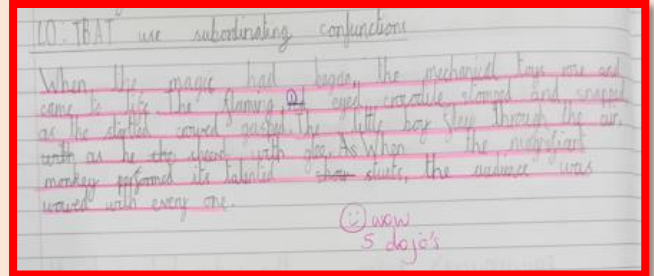 LO: TBAT use subordinating conjunctions
When the magic had began, the mechanical toys rose and
came to life. The flaming, eyed crocodile stomped and snapped
as the startled crowd gasped. The little boy flew through the air,
as he cheered with glee. As When the magnificent
monkey performed its talented stunts, the audience was
wowed with every one.
wow
5 dojo's